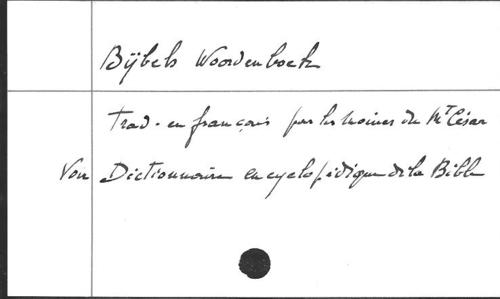 Bijbels Woordenboek
Trad. en français par les moines du Mt César
Voir Dictionnaire encyclopédique de la Bible